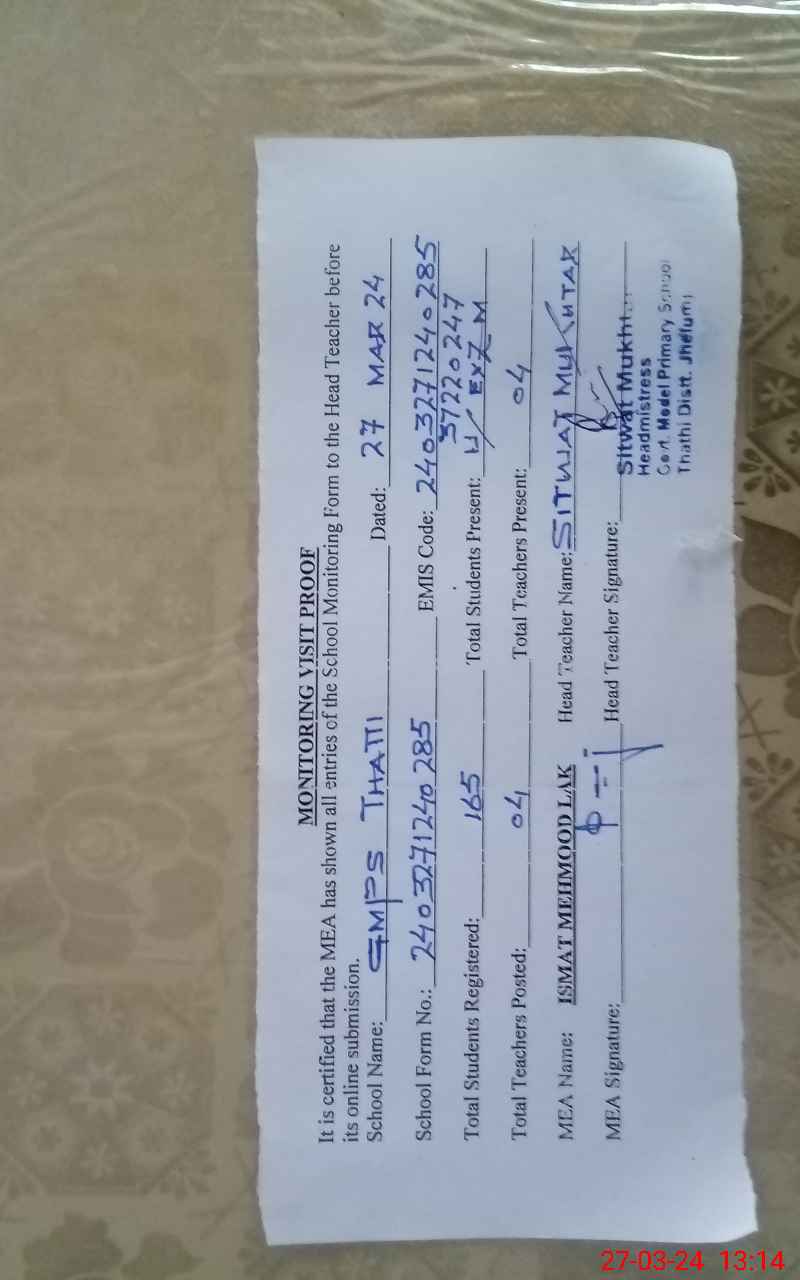 MONITORING VISIT PROOF
It is certified that the MEA has shown all entries of the School Monitoring Form to the Head Teacher before
its online submission.
School Name: GMPS THATTI Dated: 27 MAR 24
School Form No.: 2403271240285 EMIS Code: 2403271240285
37220247
Total Students Registered: 165 Total Students Present: EXZM
Total Teachers Posted: 04 Total Teachers Present: 04
MEA Name: ISMAT MEHMOOD LAK Head Teacher Name: SITWAT MUKHTAR
MEA Signature: Head Teacher Signature:
Sitwat
Headmistress
Govt. Model Primary School
Thathi Distt. Jhelum
27-03-24 13:14